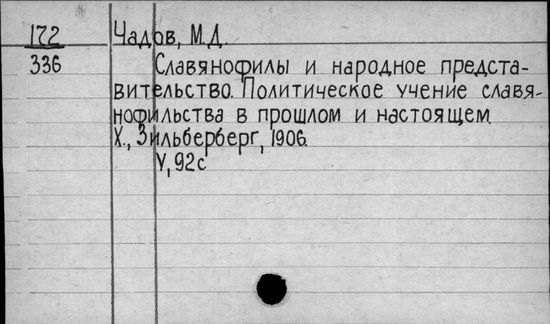 172 Чадов, М.Д.
336 Славянофилы и народное предста-
вительство. Политическое учение славя-
нофильства в прошлом и настоящем.
Х., Зильберберг, 1906.
V, 92с